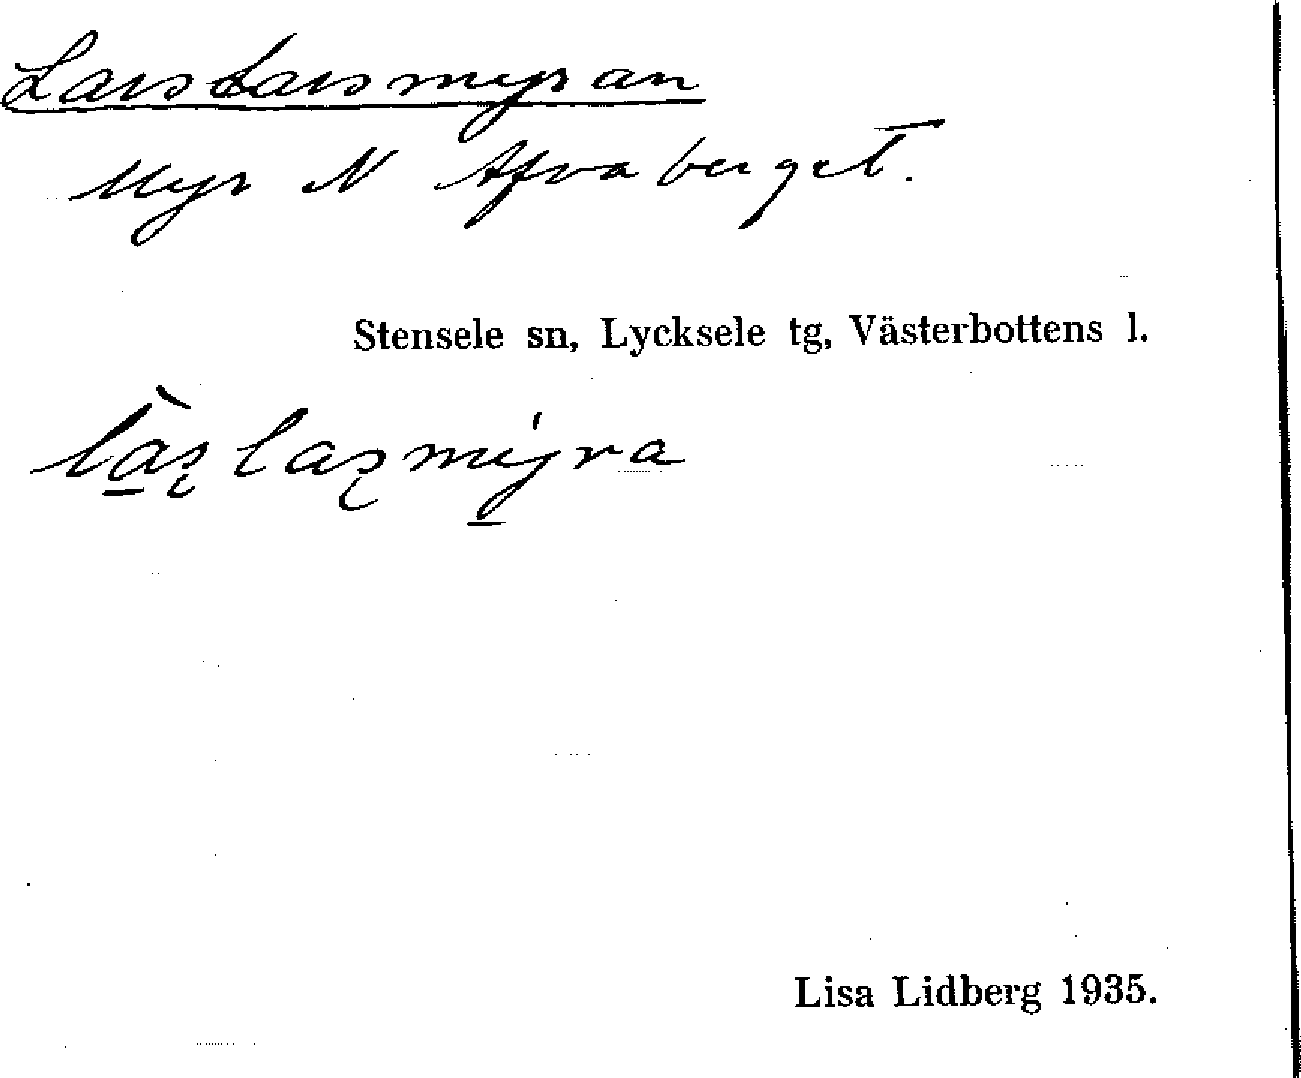 Lars Larsmyran
Myr N Afvaberget.
Stensele sn, Lycksele tg, Västerbottens l.
Lisa Lidberg 1935.